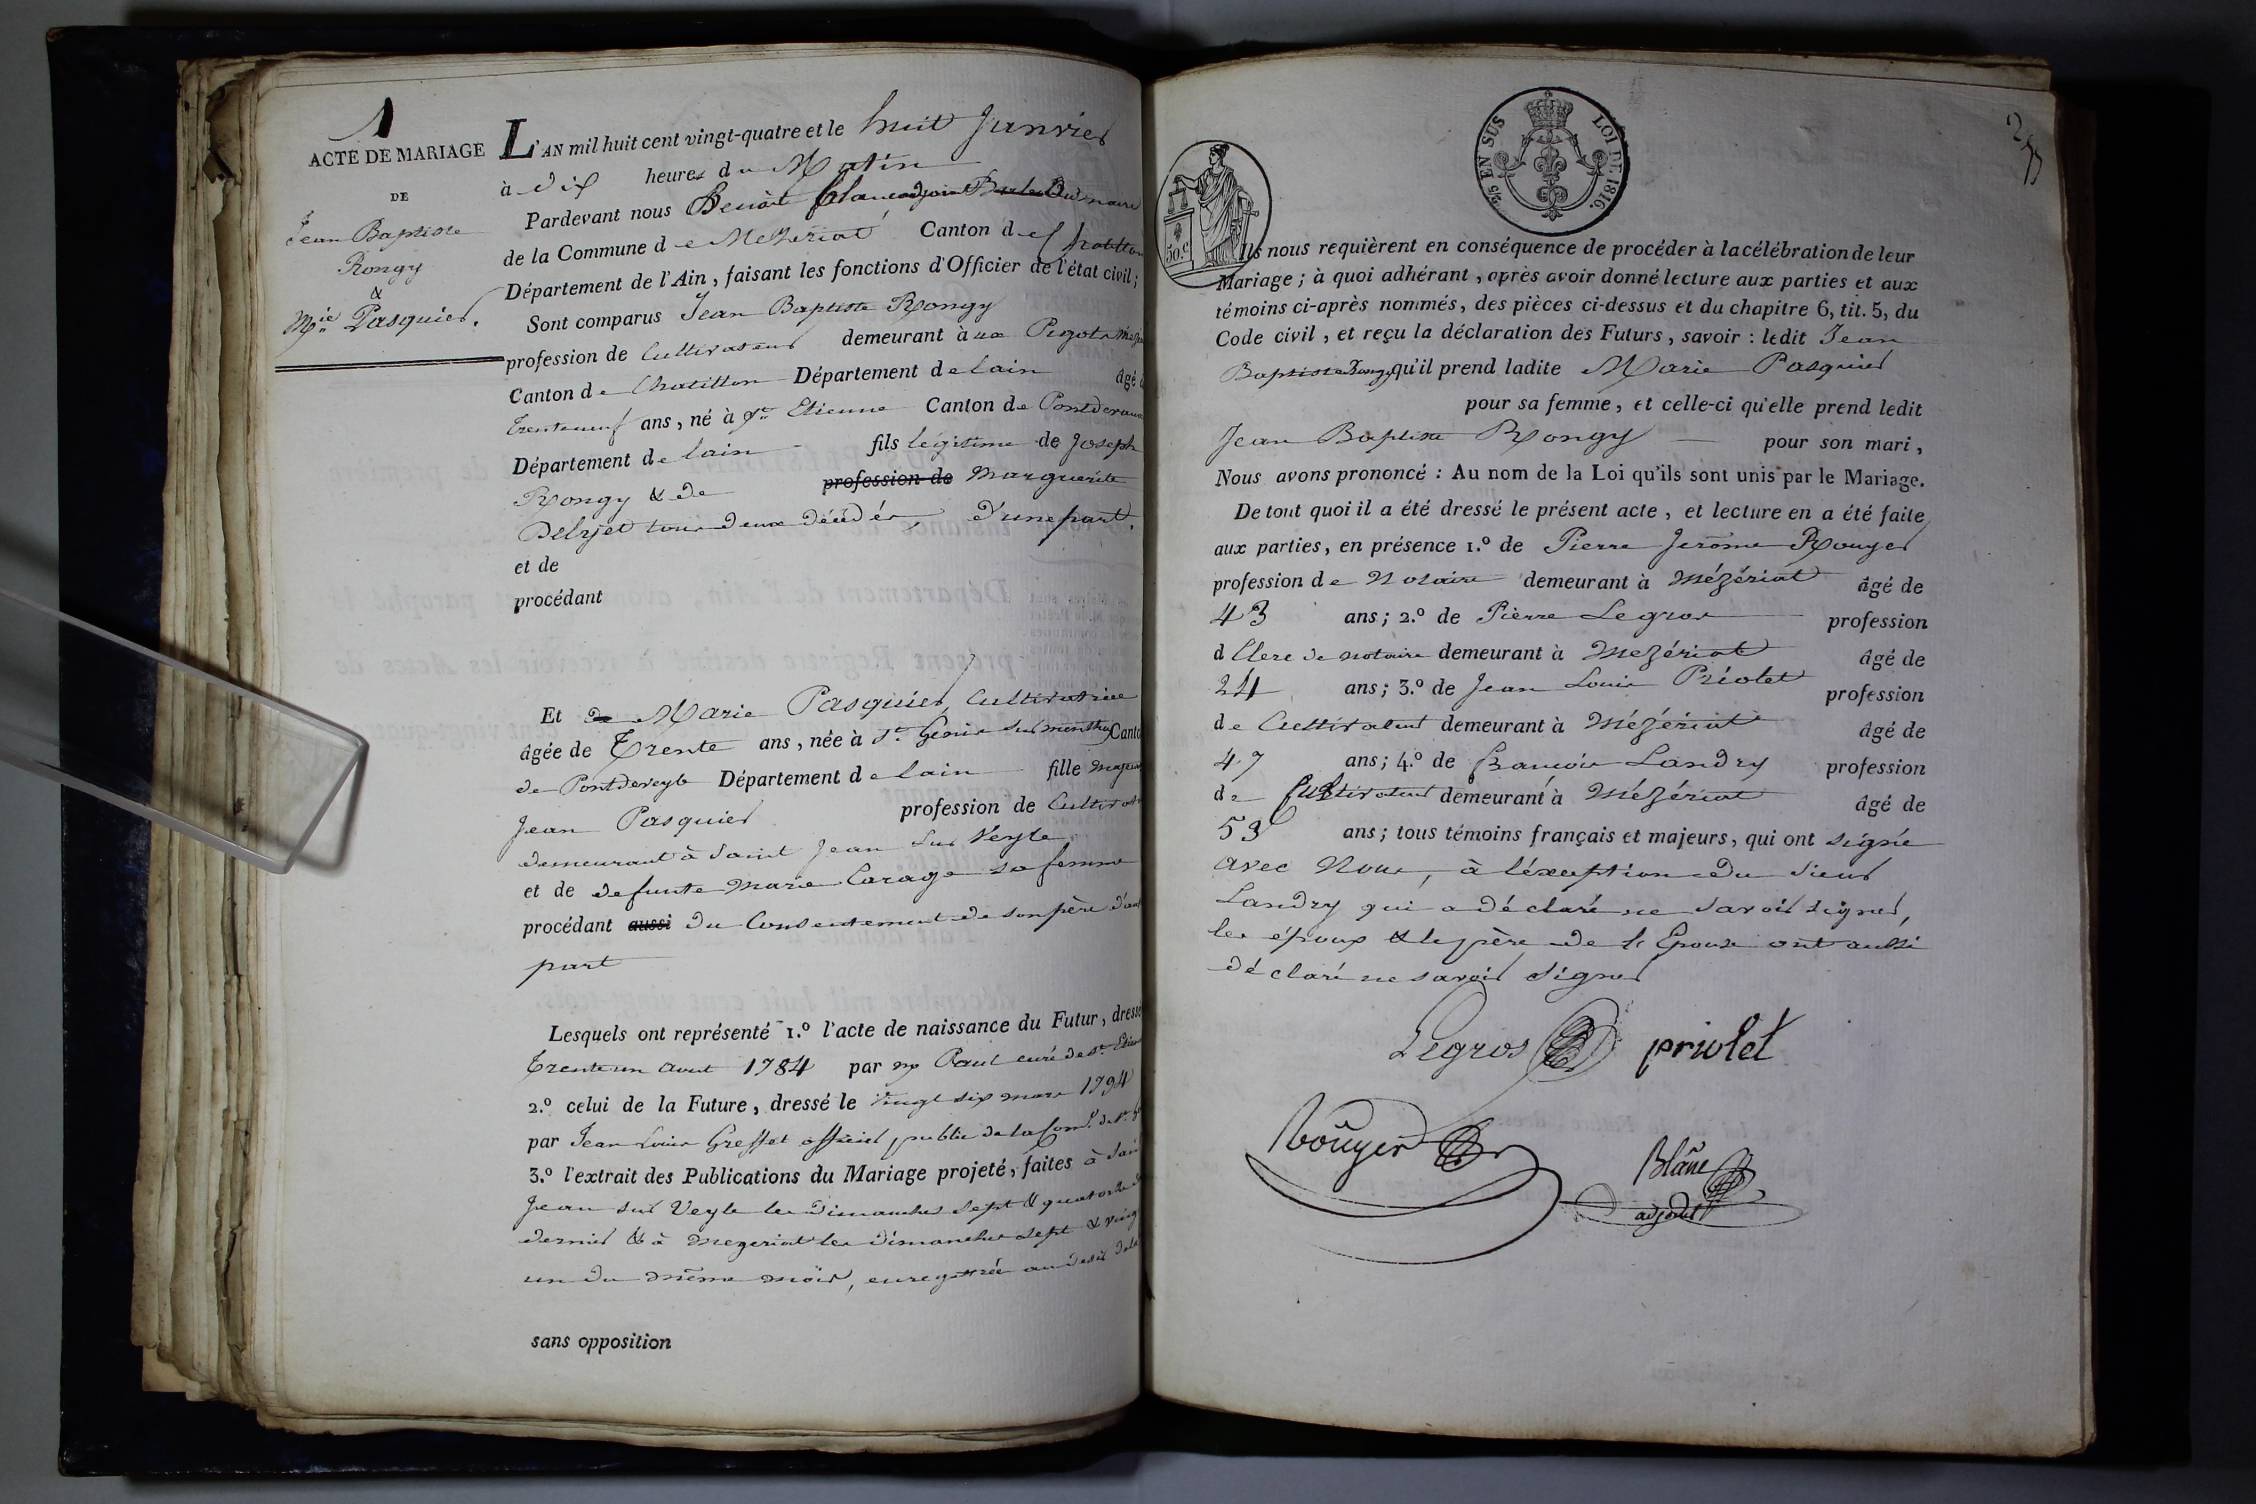 1
ACTE DE MARIAGE
DE
Jean Baptiste
Rongy
&
Mie Pasquier.
L'AN mil huit cent vingt-quatre et le huit Janvier
à dix heures du Matin
Pardevant nous Benoît Blanc adjoint du maire
de la Commune de Mezériat Canton de Chatillon
Département de l'Ain, faisant les fonctions d'Officier de l'état civil;
Sont comparus Jean Baptiste Rongy
profession de Cultivateur demeurant à
Canton de Chatillon Département de lain âgé
Trenteneuf ans, né à St Etienne Canton de Pontdevaux
Département de lain fils légitime de Joseph
Rongy & de profession de Marguerite
tous deux décédés d'une part.
et de
procédant
Et de Marie Pasquier, Cultivatrice
âgée de Trente ans, née à St Genis sur menthon Canto
de Pontdeveyle Département de lain fille majeure
Jean Pasquier profession de Cultivat
demeurant à Saint Jean Sur Veyle
et de defunte Marie Carage sa femme
procédant aussi du Consentement de son père d'aut
part
Lesquels ont représenté 1.º l'acte de naissance du Futur, dressé
Trente un Aout 1784 par Mr Paul curé de St Etien
2.º celui de la Future, dressé le vingt six mars 1794
par Jean Louis Greffet officier public de la Com.e de St
3.º l'extrait des Publications du Mariage projeté, faites à Sain
Jean sur Veyle les dimanches sept & quatorze
dernier & à Mezeriat les dimanches sept & vingt
un du même mois, enregistrée au desir de la
sans opposition
50.c
2/5 EN SUS
LOI DE 1816.
Ils nous requièrent en conséquence de procéder à la célébration de leur
Mariage; à quoi adhérant, après avoir donné lecture aux parties et aux
témoins ci-après nommés, des pièces ci-dessus et du chapitre 6, tit. 5, du
Code civil, et reçu la déclaration des Futurs, savoir: ledit Jean
Baptiste Rongy qu'il prend ladite Marie Pasquier
pour sa femme, et celle-ci qu'elle prend ledit
Jean Baptiste Rongy pour son mari,
Nous avons prononcé: Au nom de la Loi qu'ils sont unis par le Mariage.
De tout quoi il a été dressé le présent acte, et lecture en a été faite
aux parties, en présence 1.º de Pierre Jerôme Rouyer
profession de Notaire demeurant à Mézériat âgé de
43 ans; 2.º de Pierre Legros profession
d Clerc de notaire demeurant à Mezériat âgé de
24 ans; 3.º de Jean Louis Priolet profession
de Cultivateur demeurant à Mézériat âgé de
47 ans; 4.º de François Landry profession
de Cultivateur demeurant à Mézériat âgé de
53 ans; tous témoins français et majeurs, qui ont signé
avec Nous, à l'éxception du Sieur
Landry qui a déclaré ne savoir signer,
les époux & le père de l'Epouse ont aussi
déclaré ne savoir signer
Legros priolet
Rouyer
Blanc
adjoint